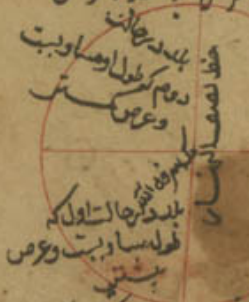 بلد در حالت
دوم که طول او مساویست
و عرض کمتر
خط نصف النهار
بلد در حالت اول که
طول مساویست و عرض
بیشتر